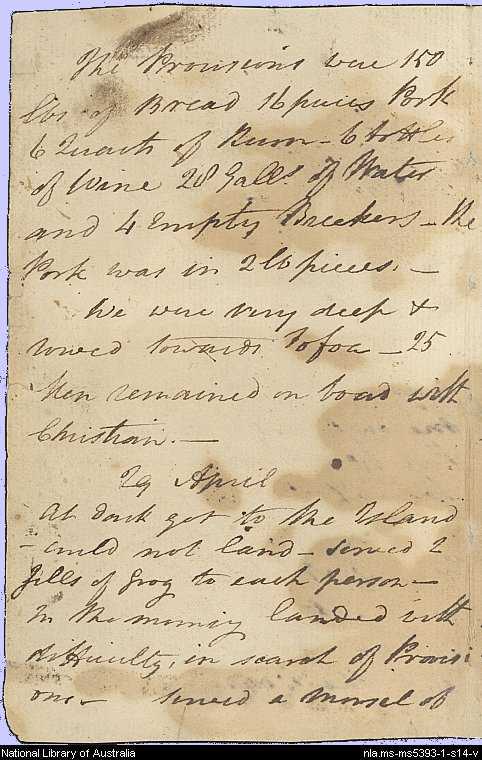 The Provisions were 150
lbs of Bread 16 pieces Pork
6 Quarts of Rum - 6 bottles
of Wine 28 Galls. of Water
and 4 Empty Breekers - the
Pork was in 2 lb pieces. -
We were very deep &
rowed towards Tofoa - 25
Men remained on board with
Christian. -
29 April
At dark got to the Island
- could not land - served 2
Jills of Grog to each person -
In the morning landed with
difficulty, in search of Provisi
ons - Served a Morsel of
National Library of Australia
nla.ms-ms5393-1-s14-v